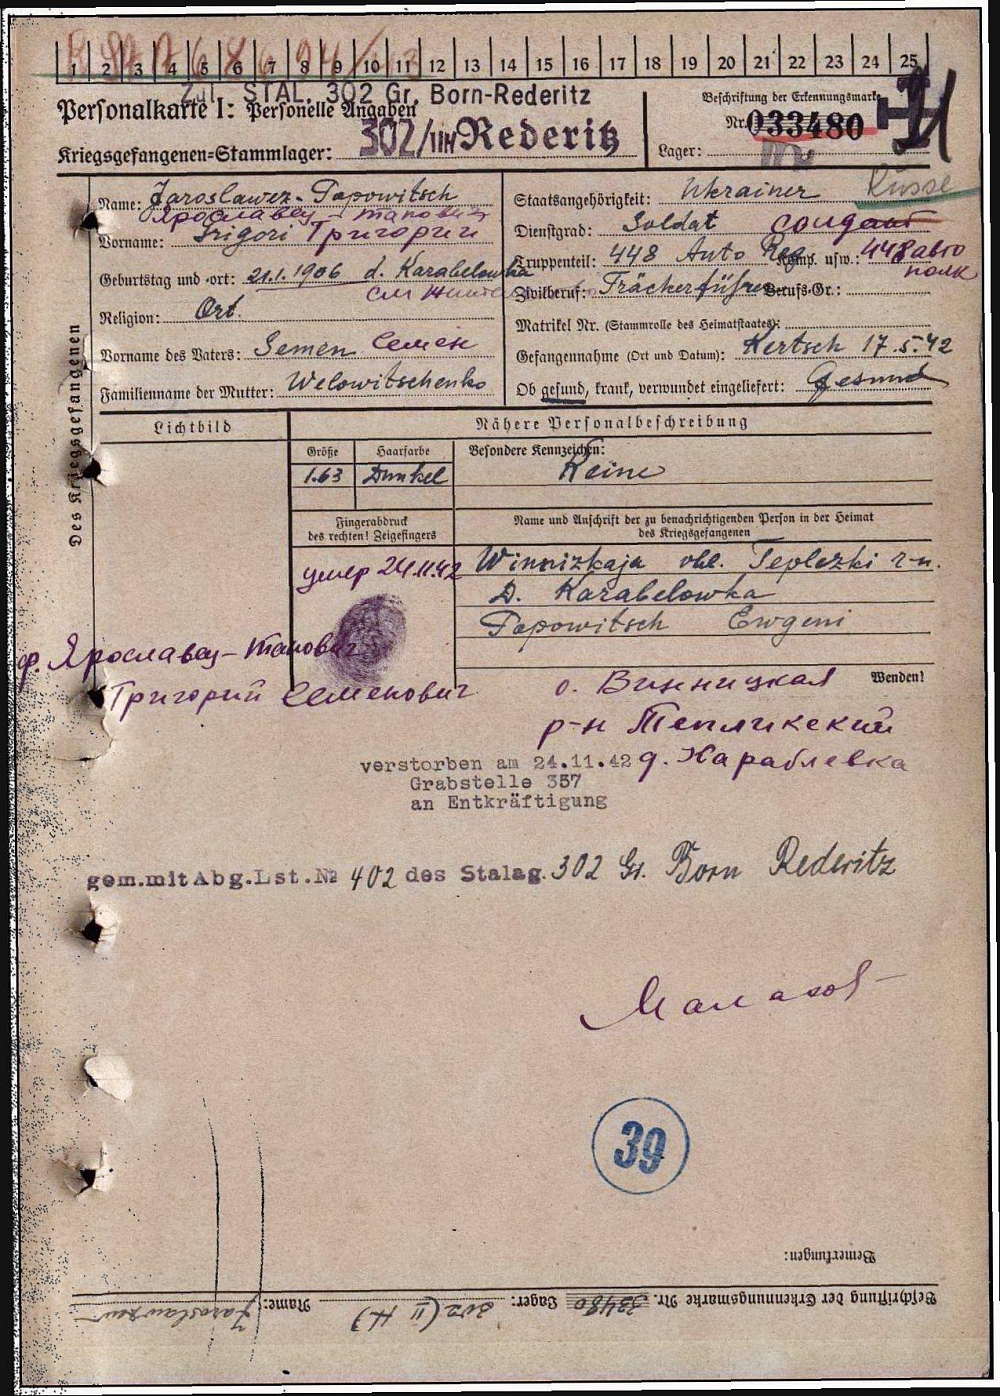 1 2 3 4 5 6 7 8 9 10 11 12 13 14 15 16 17 18 19 20 21 22 23 24 25
Zul. STAL. 302 Gr. Born-Rederitz
Personalkarte I: Personelle Angaben
Kriegsgefangenen-Stammlager: 302/IIH Rederitz
Beschriftung der Erkennungsmarke
Nr. 033480
Lager:
II H
Russe
Des Kriegsgefangenen
Name: Jaroslawez-Papowitsch
Ярославец-
Vorname: Grigori Григории
Geburtstag und -ort: 21.1.1906 d. Karabelowka
Religion: Ort.
Vorname des Vaters: Semen Семен
Familienname der Mutter: Welowitschenko
Staatsangehörigkeit: Ukrainer
Dienstgrad: Soldat солдат
Truppenteil: 448 Auto Reg. Komp. usw.: 448 авто
полк
Zivilberuf: Berufs-Gr.:
Matrikel Nr. (Stammrolle des Heimatstaates):
Gefangennahme (Ort und Datum): Kertsch 17.5.42
Ob gesund, krank, verwundet eingeliefert: Gesund
Lichtbild
Nähere Personalbeschreibung
Größe Haarfarbe Besondere Kennzeichen:
1.63 Dunkel Keine
Fingerabdruck
des rechten! Zeigefingers
Name und Anschrift der zu benachrichtigenden Person in der Heimat
des Kriegsgefangenen
умер 24.11.42
Winnizkaja obl. Teplezki r-n.
D. Karabelowka
Papowitsch Ewgeni
ф. Ярославец-
Григорий Семенович
Wenden!
о. Винницкая
р-н Тепликский
д. Караблевка
verstorben am 24.11.42
Grabstelle 357
an Entkräftigung
gem.mit Abg.Lst.№ 402 des Stalag. 302 Gr. Born Rederitz
39
Bemerkungen:
Beschriftung der Erkennungsmarke Nr. 33480 Lager: 302 (II H) Name: Jaroslawzew